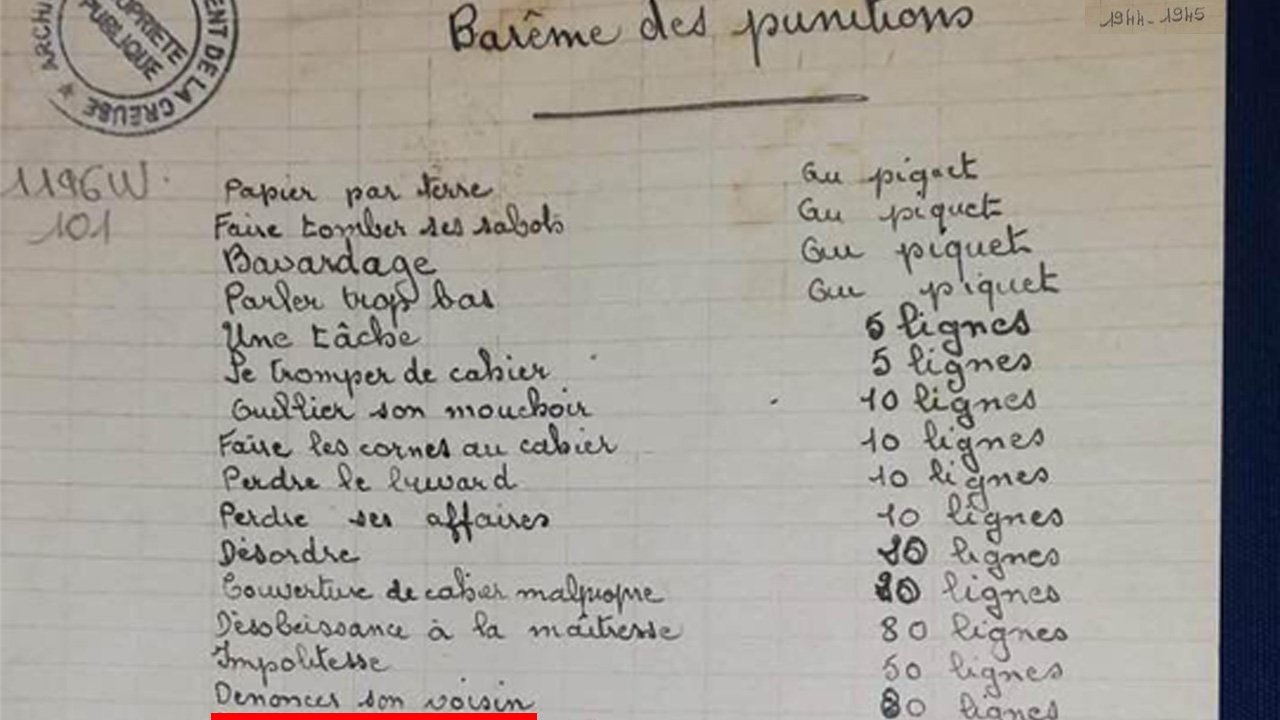 ARCHI ENT DE LA CREUSE
OPRIETE
PUBLIQUE
Barême des punitions
1944-1945
1196W.
101
Papier par terre Au piquet
Faire tomber ses sabots Au piquet
Bavardage Au piquet
Parler trop bas Au piquet
Une tâche 5 lignes
Se tromper de cahier 5 lignes
Oublier son mouchoir 10 lignes
Faire les cornes au cahier 10 lignes
Perdre le buvard 10 lignes
Perdre ses affaires 10 lignes
Désordre lignes
Couverture de cahier malpropre lignes
Désobeissance à la maîtresse 80 lignes
Impolitesse 50 lignes
Denoncer son voisin 80 lignes